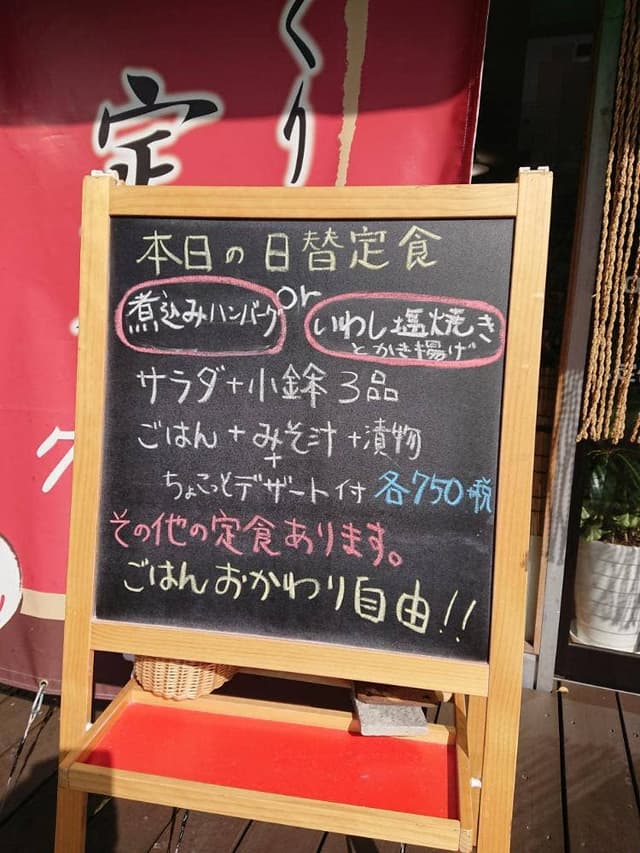 くり
定
ク
本日の日替定食
煮込みハンバーグ or いわし塩焼き
とかき揚げ
サラダ+小鉢3品
ごはん+みそ汁+漬物
+
ちょこっとデザート付 各750+税
その他の定食あります。
ごはんおかわり自由!!